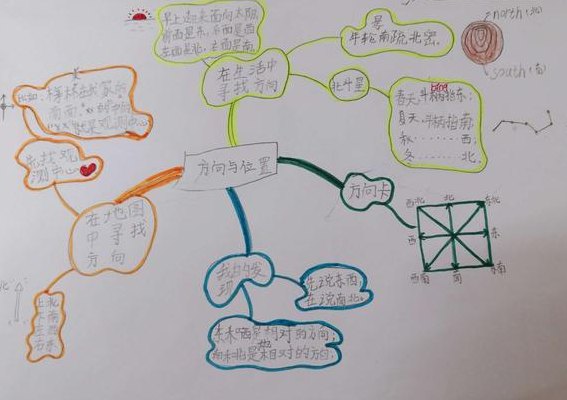 早上起来面向太阳
前面是东，后面是西
左面是北，右面是南。
在生活中
寻找方向
年轮南疏北密。
north(北)
south(南)
北斗星
bǐng
春天,斗柄指东;
夏天,斗柄指南;
秋········西;
冬········北;
方向与位置
方向卡
西北
北
东北
西
东
西南
南
东南
我的发
现
先说东西,
在说南北。
东和西是相对的方向;
南和北是相对的方向;
在地图
中寻找
方向
先找观
测中心
上北
下南
左西
右东
北